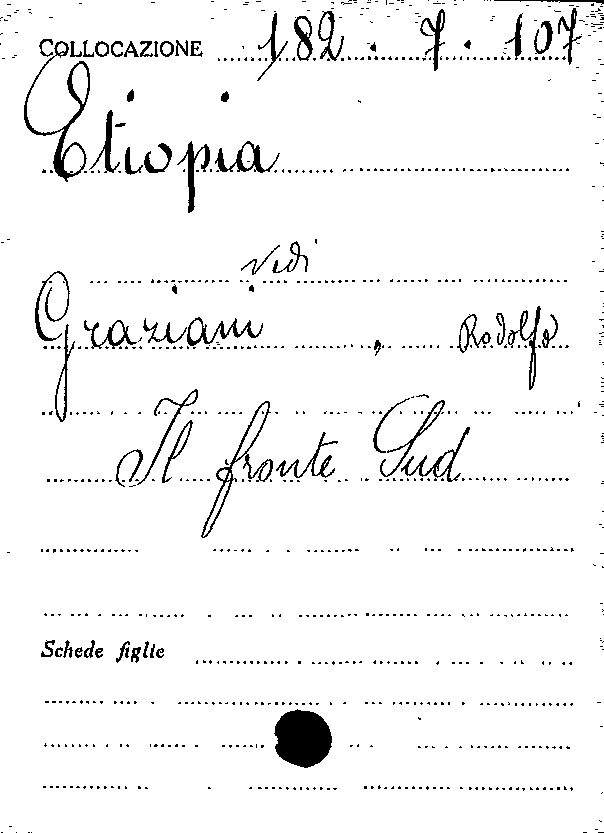 COLLOCAZIONE 182.7.107
Etiopia
Vedi
Graziani, Rodolfo
Il fronte Sud
Schede figlie